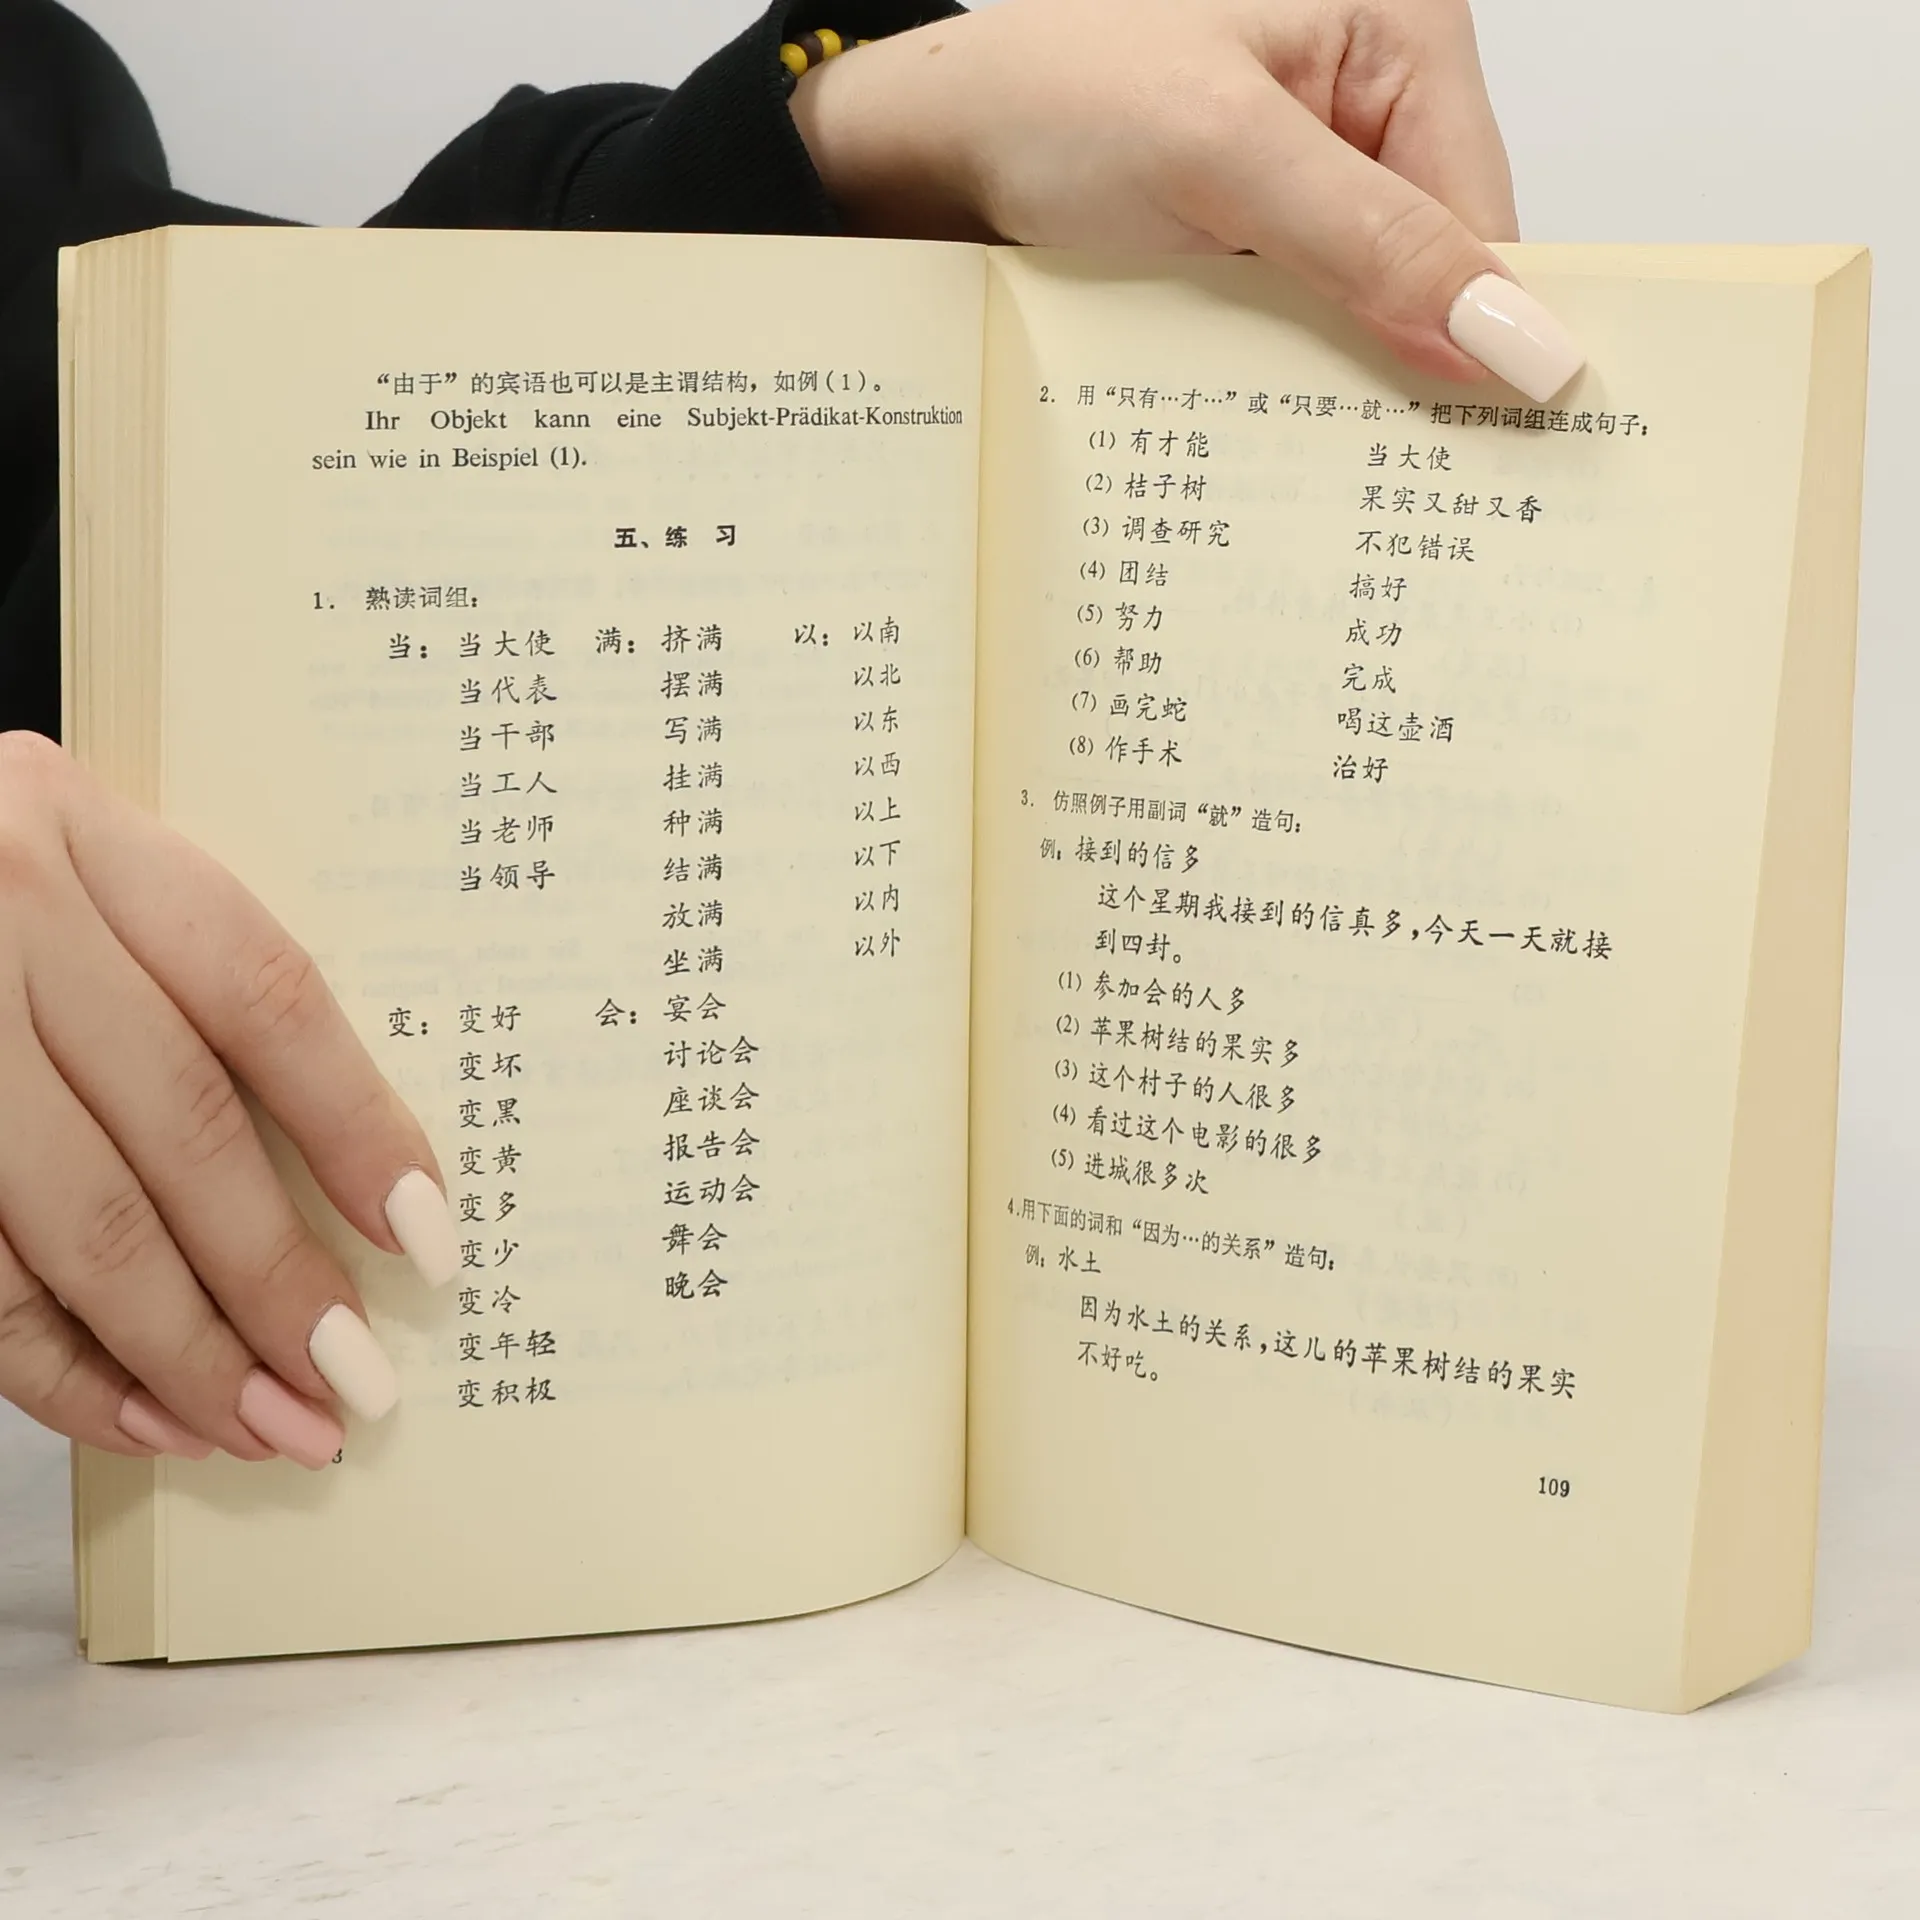 “由于”的宾语也可以是主谓结构，如例(1)。
Ihr Objekt kann eine Subjekt-Prädikat-Konstruktion
sein wie in Beispiel (1).
五、练 习
1. 熟读词组：
当：当大使 满：挤满 以：以南
当代表 摆满 以北
当干部 写满 以东
当工人 挂满 以西
当老师 种满 以上
当领导 结满 以下
放满 以内
坐满 以外
变：变好 会：宴会
变坏 讨论会
变黑 座谈会
变黄 报告会
变多 运动会
变少 舞会
变冷 晚会
变年轻
变积极
2. 用“只有…才…”或“只要…就…”把下列词组连成句子：
(1) 有才能 当大使
(2) 桔子树 果实又甜又香
(3) 调查研究 不犯错误
(4) 团结 搞好
(5) 努力 成功
(6) 帮助 完成
(7) 画完蛇 喝这壶酒
(8) 作手术 治好
3. 仿照例子用副词“就”造句：
例：接到的信多
这个星期我接到的信真多，今天一天就接
到四封。
(1) 参加会的人多
(2) 苹果树结的果实多
(3) 这个村子的人很多
(4) 看过这个电影的很多
(5) 进城很多次
4.用下面的词和“因为…的关系”造句：
例：水土
因为水土的关系，这儿的苹果树结的果实
不好吃。
109